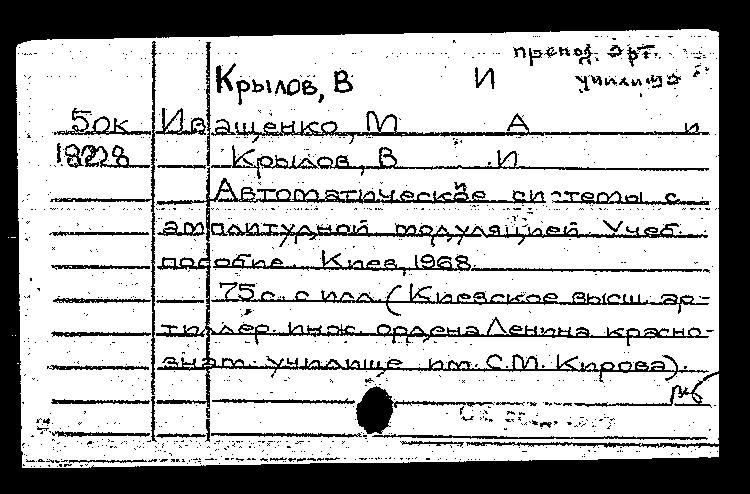 препод. арт.
Крылов, В И училища
50к Иващенко, М А и
18228 Крылов, В И
Автоматические системы с
амплитудной модуляцией. Учеб.
пособие. Киев, 1968.
75 с. с илл. (Киевское высш. ар-
тиллер. инж. ордена Ленина красно-
знам. училище им. С.М. Кирова).